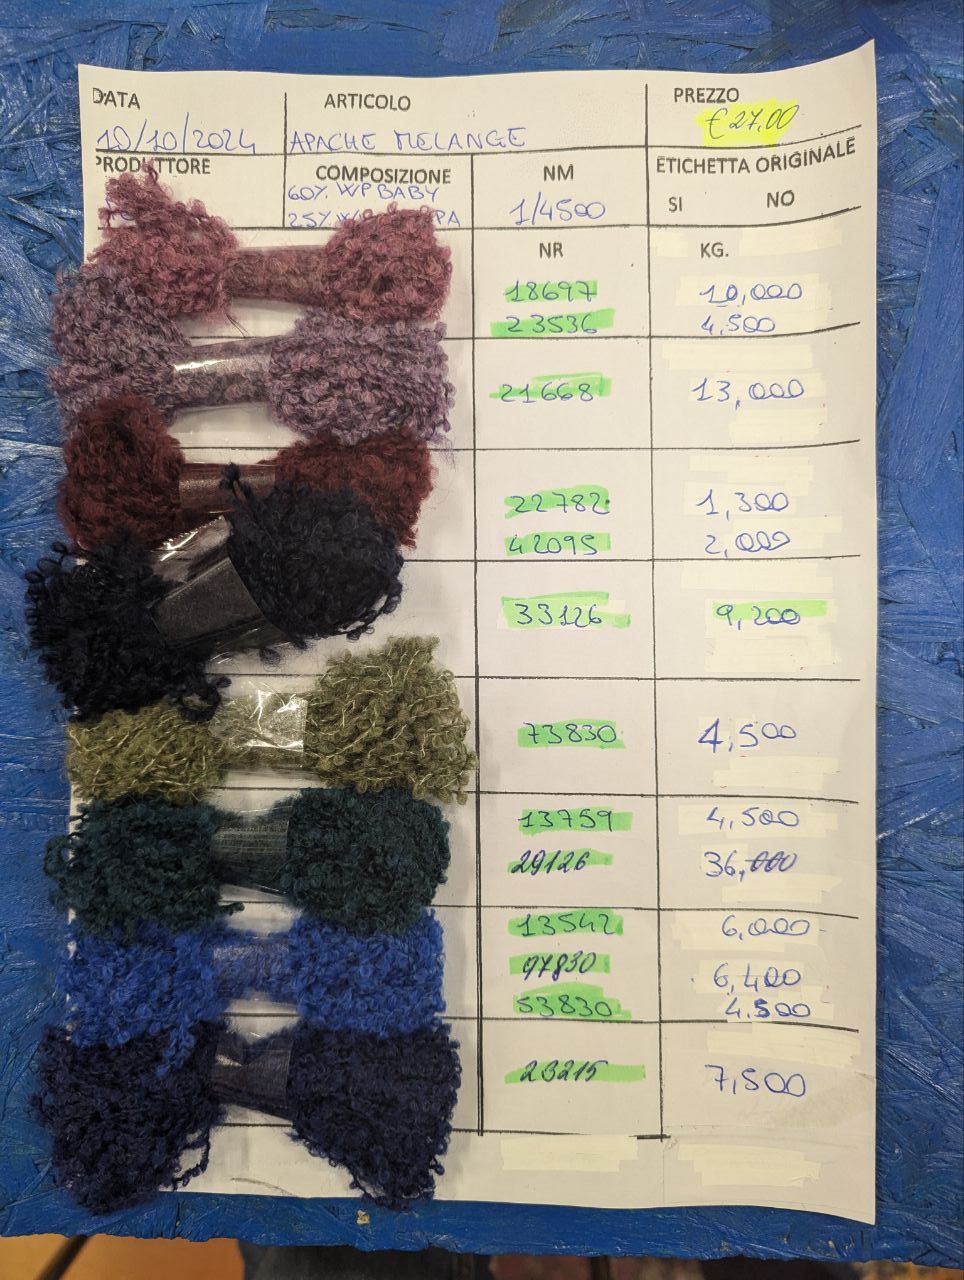 DATA ARTICOLO PREZZO
10/10/2024 APACHE MELANGE €27,00
PRODUTTORE COMPOSIZIONE NM ETICHETTA ORIGINALE
60% WP BABY
25% 1/4500 SI NO
NR KG.
18697 10,000
23536 4,500
21668 13,000
22782 1,300
42095 2,000
33126 9,200
73830 4,500
13759 4,500
29126 36,000
13542 6,000
97830 6,400
53830 4.500
23215 7,500